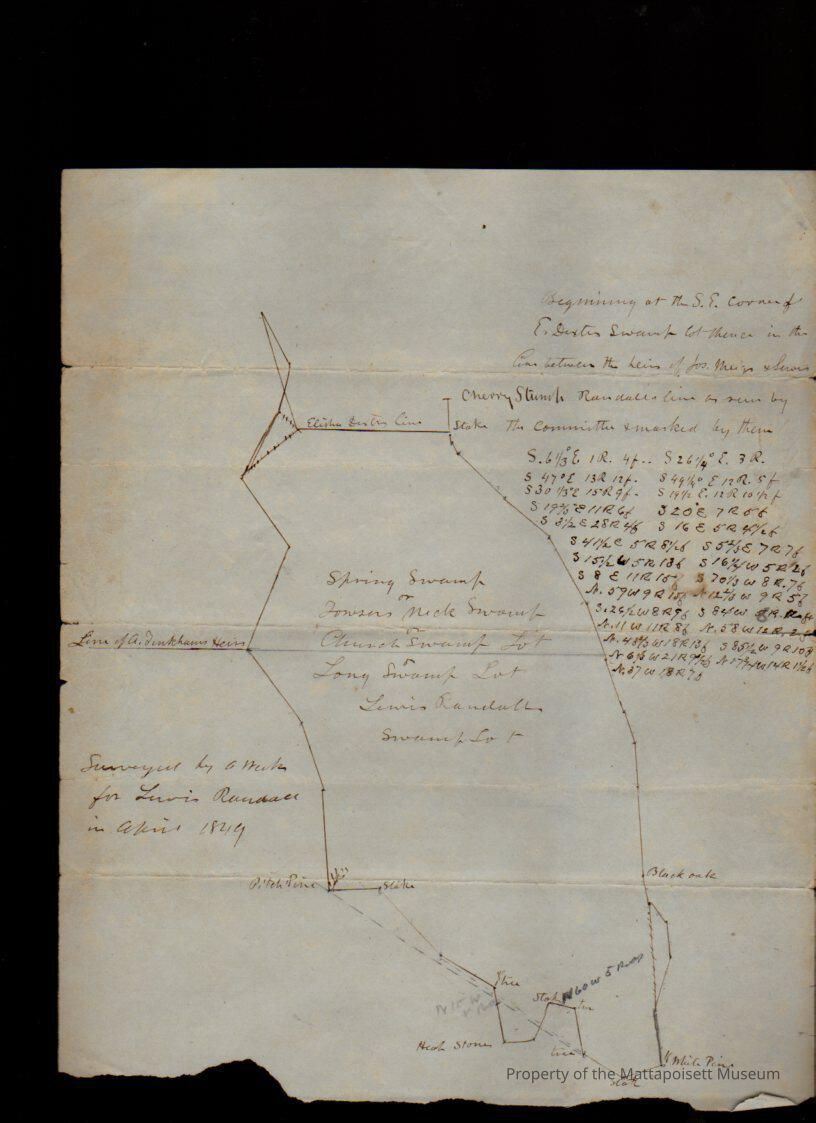 Beginning at the S.E. Corner of
E. Dexter Swamp lot thence in the
line between the heirs of Jos. Meigs & Lewis
Cherry Stump Randall's line as run by
Elisha Dexter line
Stake the Committee & marked by them
S. 6 1/3° E 1 R. 4 f. S 26 1/4° E. 3 R.
S 47° E 13 R 12 f. S 49 1/4° E 12 R. 5 f
S 30 1/3° E 15 R 9 f. S 19 1/2 E. 12 R 10 1/2 f
S 19 2/3° E 11 R 6 f S 20° E 7 R 5 f
S 3 1/2 E 28 R 4 f S 16 E 5 R 4 1/2 f
S 41 1/2 E 5 R 8 1/2 f S 5 2/3 E 7 R 7 f
S 15 1/2 W 5 R 13 f S 16 3/4 W 5 R 2 f
S 8 E 11 R 15 f S 70 1/3 W 8 R. 7 f
N. 59 W 9 R 15 f N 12 2/3 W 9 R 5 f
S. 26 1/2 W 8 R 9 f S 84 W
N. 11 W 11 R 8 f N. 58 W 12 R. 2 f
N. 48 2/3 W 18 R 13 f S 85 1/2 W 9 R 10 f
N 6 1/3 W 21 R 9 1/2 f N 17 3/4 W 14 R 1 1/2 f
N. 37 W 18 R 7 f
Spring Swamp
or
Towsers Neck Swamp
or
Church Swamp Lot
or
Long Swamp Lot
Lewis Randalls
Swamp Lot
Line of A. Tinkhams Heirs
Surveyed by A Weeks
for Lewis Randall
in April 1849
Pitch Pine
Stake
Black oak
tree
N 60 W 5 Rods
Stake
tree
N 15 W
Heap Stones
tree
White Pine
Stake
Property of the Mattapoisett Museum